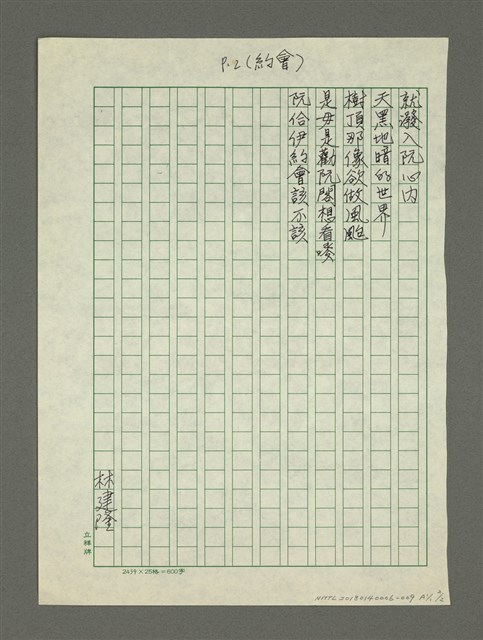 P.2(約會)
就潑入阮心內
天黑地暗的世界
樹頂那像欲做風颱
是毋是勸阮閣想看嘜
阮佮伊約會該不該
林建隆
立輝牌
24行×25格=600字
NMTL20180140006-009